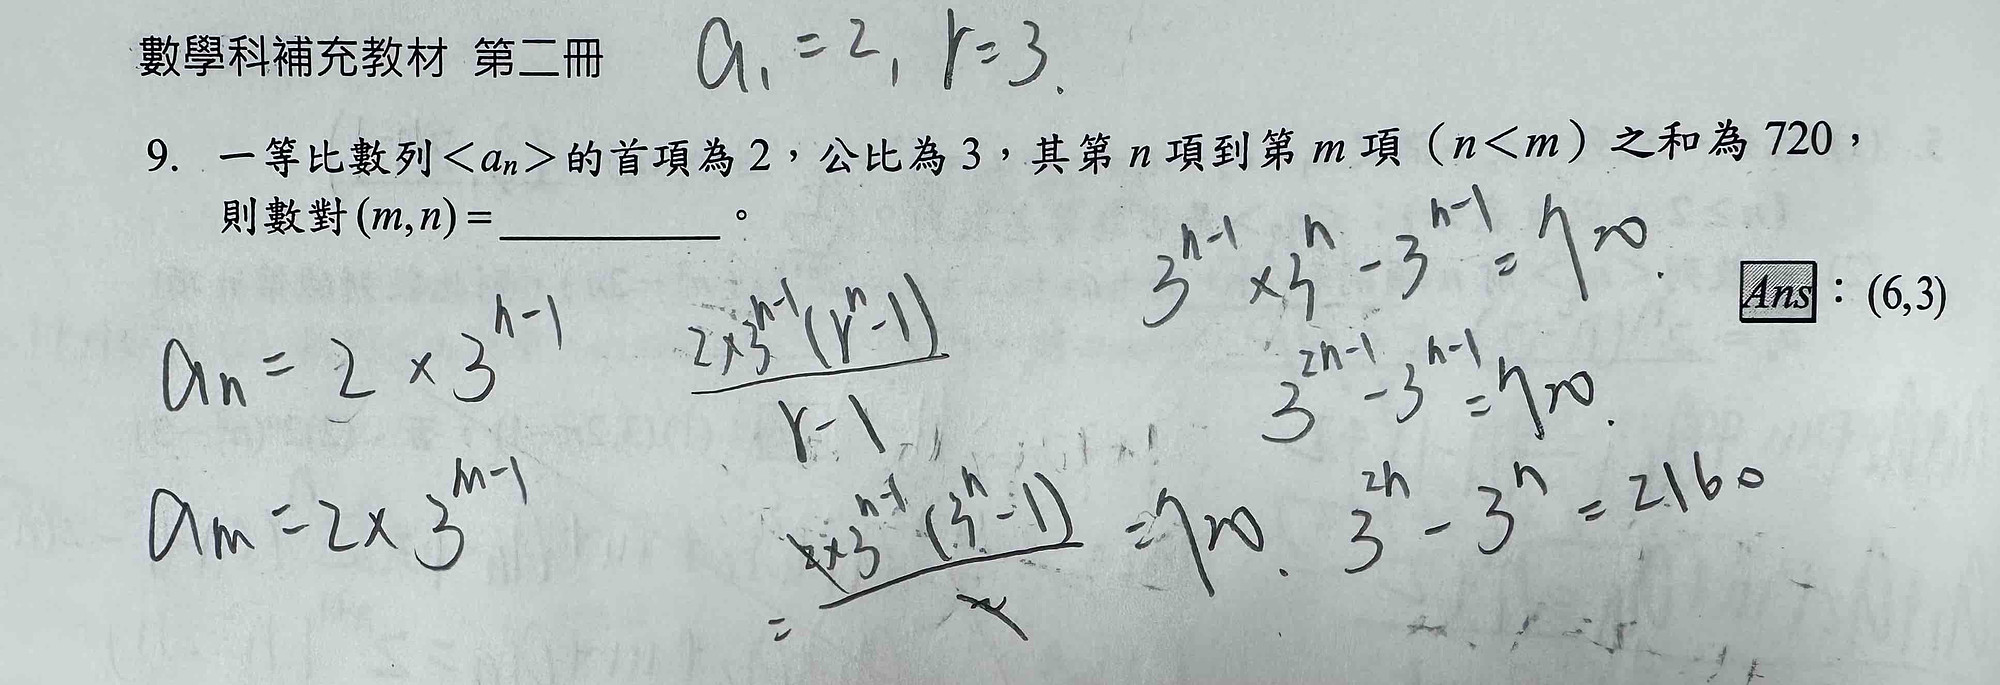 數學科補充教材 第二冊
a₁ = 2, r = 3.
9. 一等比數列<aₙ>的首項為 2,公比為 3,其第 n 項到第 m 項(n<m)之和為 720,
則數對(m,n)=________。
Ans:(6,3)
aₙ = 2 × 3^(n-1)
aₘ = 2 × 3^(m-1)
2×3^(n-1)(rⁿ-1) / r-1
= 2×3^(n-1)(3ⁿ-1) / 2 = 720.
3^(n-1) × 3ⁿ - 3^(n-1) = 720.
3^(2n-1) - 3^(n-1) = 720.
3^(2n) - 3ⁿ = 2160